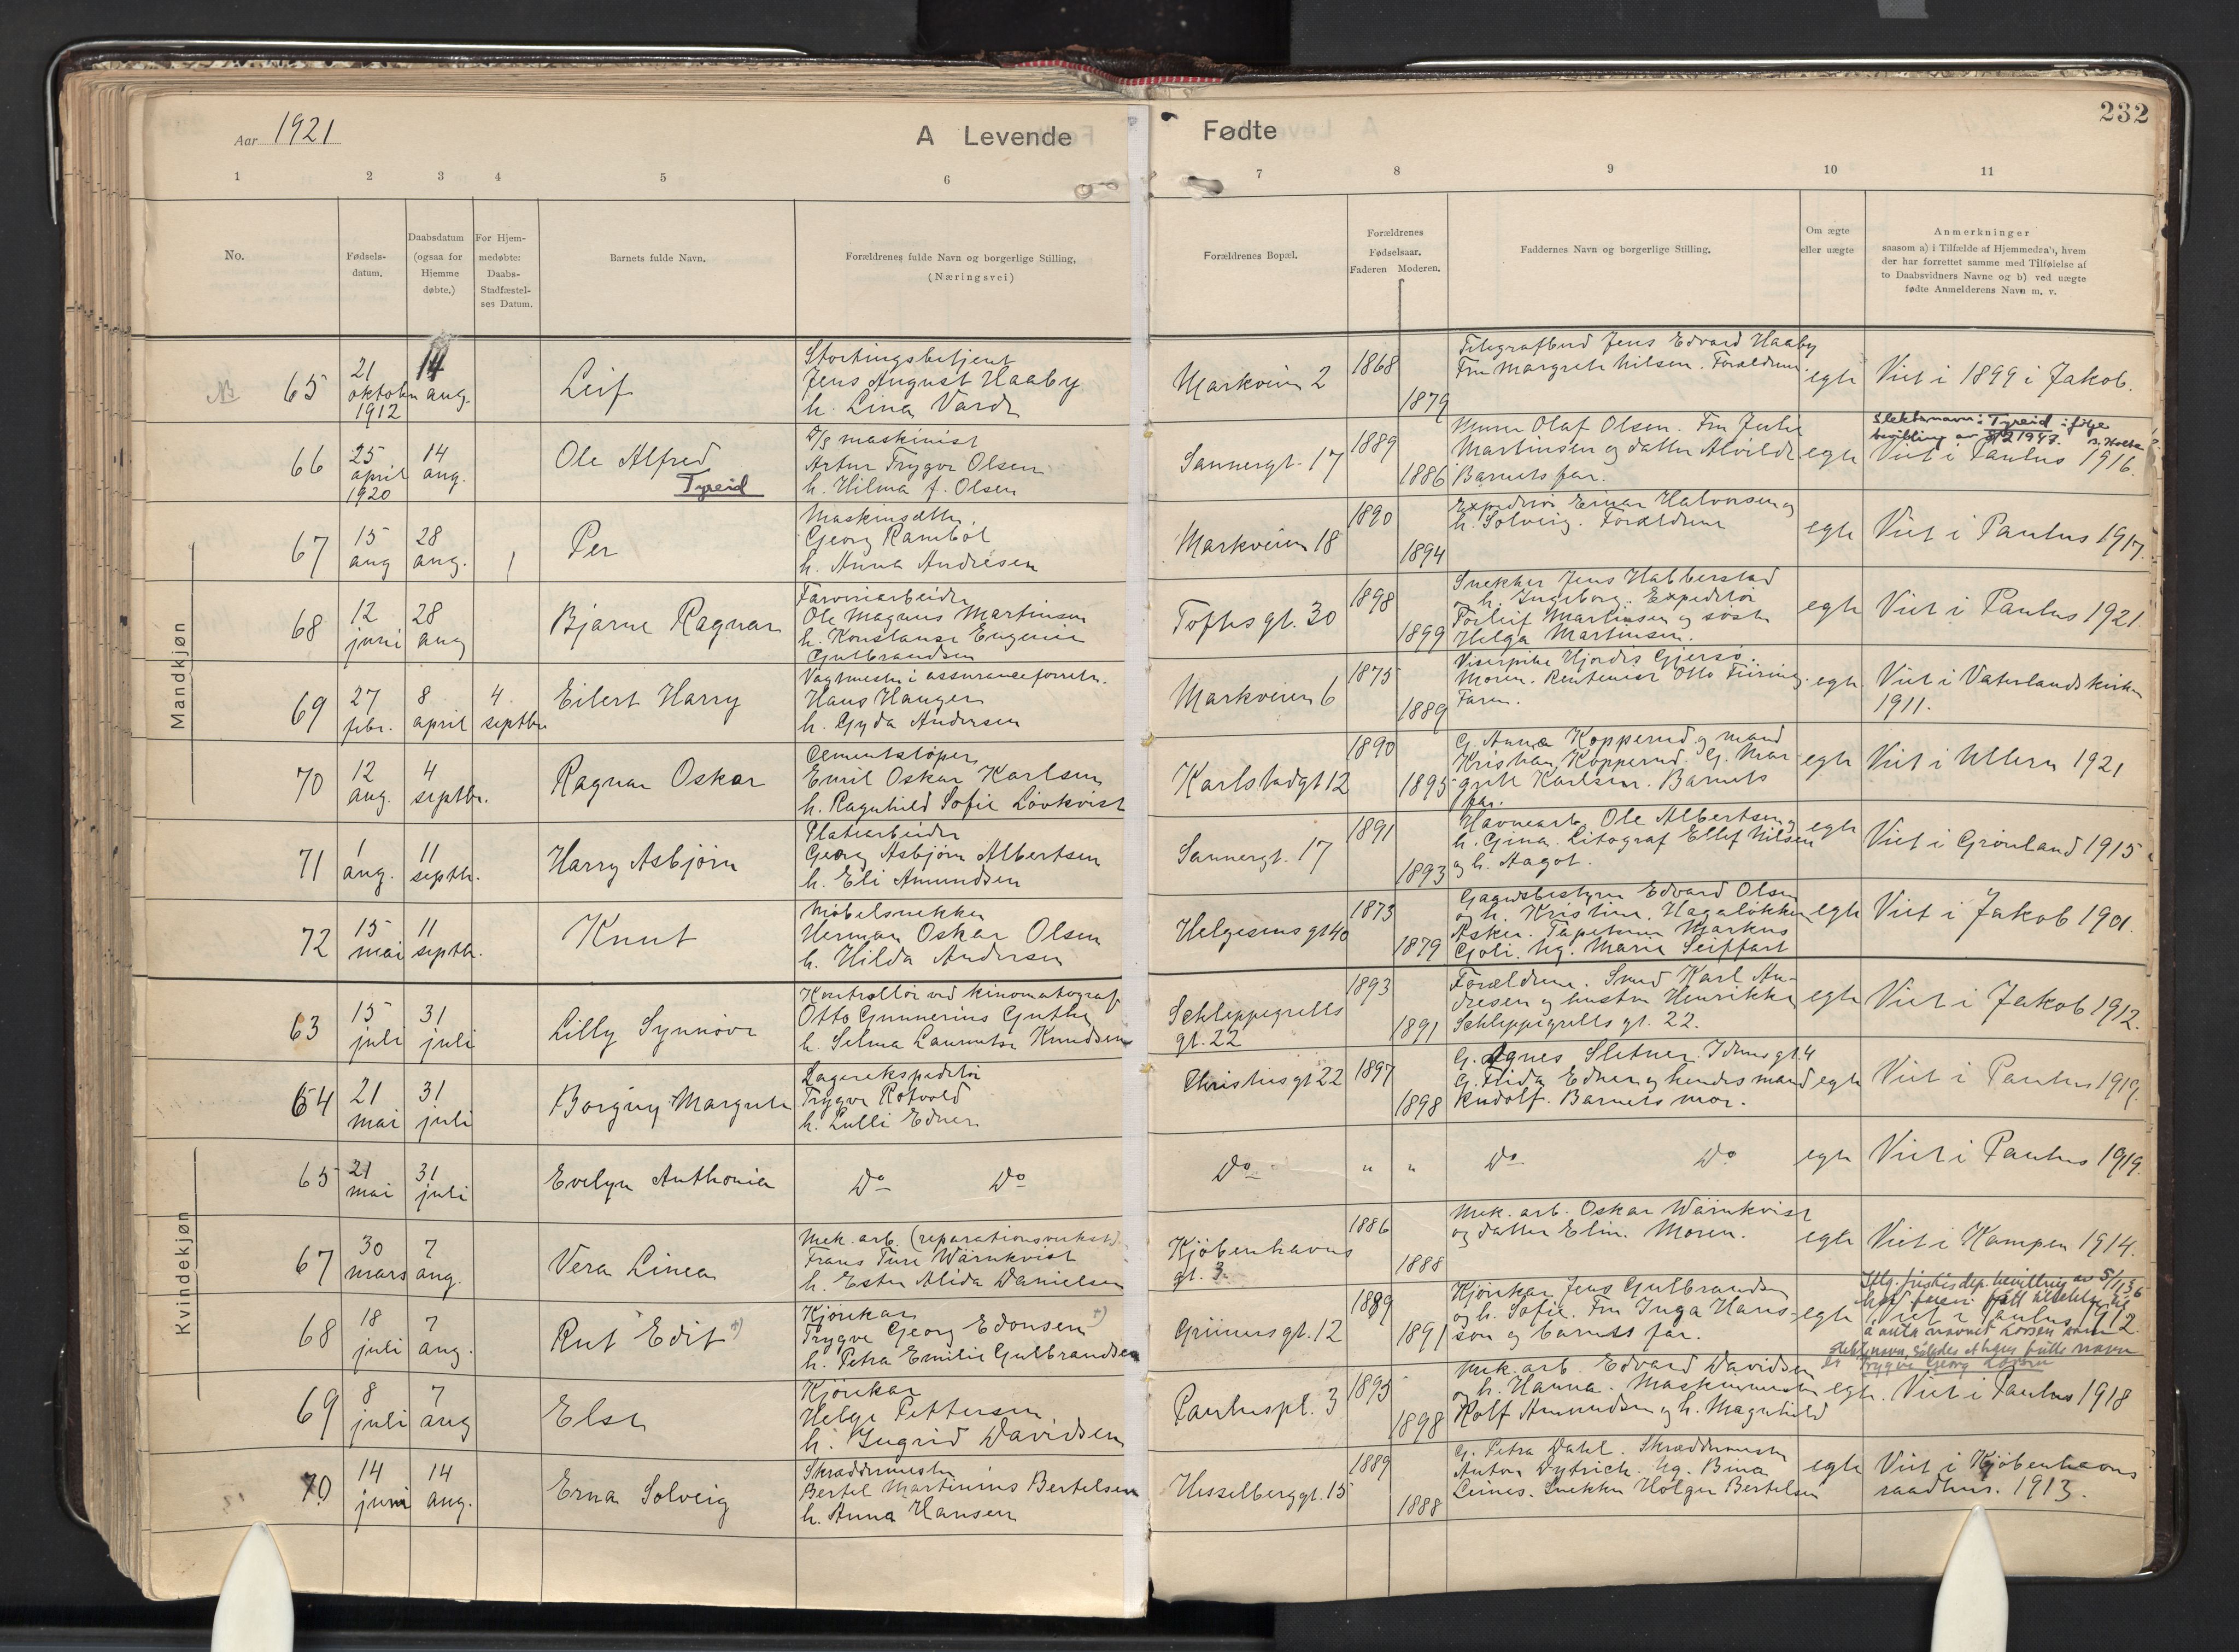 Aar 1921
A Levende
Fødte
232
1 2 3 4 5 6 7 8 9 10 11
No.
Fødsels-
datum.
Daabsdatum
(ogsaa for
Hjemme
døbte.)
For Hjem-
medøbte:
Daabs-
Stadfæstel-
ses Datum.
Barnets fulde Navn.
Forældrenes fulde Navn og borgerlige Stilling,
(Næringsvei)
Forældrenes Bopæl.
Forældrenes
Fødselsaar.
Faderen Moderen.
Faddernes Navn og borgerlige Stilling.
Om ægte
eller uægte
Anmerkninger
saasom a) i Tilfælde af Hjemmedaa's, hvem
der har forrettet samme med Tilføielse af
to Daabsvidners Navne og b) ved uægte
fødte Anmelderens Navn m. v.
Mandkjøn
65
21
oktober
1912
14
aug.
Leif
Stortingsbetjent
Jens August Haaby
h. Lina Varde
Markveien 2
1868
1879
Telegrafbud Jens Edvard Haaby
Fru Margrete Nilsen. Forældrene.
egte
Viet i 1899 i Jakob.
66
25
april
1920
14
aug.
Ole Alfred
Tyreid
D/S maskinist
Artur Trygve Olsen
h. Hilma f. Olsen
Sannergt. 17
1889
1886
Murer Olaf Olsen. Fru Julie
Martinsen og datter Alvilde
Barnets far.
egte
Slektsnavn: Tyreid ifølge
bevilling av
1947.
Viet i Paulus 1916.
67
15
aug
28
aug.
Per
Maskinsætter
Georg Rambøl
h. Anna Andresen
Markveien 18
1890
1894
Expeditør Einar Halvorsen og
h. Solveig. Forældrene
egte
Viet i Paulus 1917.
68
12
juni
28
aug
Bjarne Ragnar
Farveriarbeider
Ole Magnus Martinsen
h. Konstanse Eugenie
Gulbrandsen
Toftes gt. 30
1898
1899
Snekker Jens Habberstad
og h. Ingeborg. Expeditør
Torleif Martinsen og søster
Helga Martinsen.
egte
Viet i Paulus 1921
69
27
febr.
8
april
4
septbr
Eilert Harry
Vagtmester i assuranceforretn.
Hans Hauger
h. Gyda Andersen
Markveien 6
1875
1889
Viserpike Hjørdis Gjersø.
Moren. Rentenist Otto
Faren.
egte
Viet i Vaterlandskirken
1911.
70
12
aug.
4
septbr.
Ragnar Oskar
Cementstøper
Emil Oskar Karlsen
h. Ragnhild Sofie Lövkvist
Karlstadgt 12
1890
1895
G. Anna Kopperud og mand
Kristian Kopperud. G. Mar
grete Karlsen. Barnets
far.
egte
Viet i Ullern 1921
71
1
aug.
11
septbr.
Harry Asbjørn
Platearbeider
Georg Asbjørn Albertsen
h. Eli Amundsen
Sannergt. 17
1891
1893
Havnearb. Ole Albertsen og
h. Gina. Litograf Ellef Nilsen
og h. Aagot.
egte
Viet i Grønland 1915
72
15
mai
11
septbr.
Knut
Møbelsnekker
Herman Oskar Olsen
h. Hilda Andersen
Helgesens gt 40
1873
1879
Gaardsbestyrer Edvard Olsen
og h. Kristine. Hagaløkken
Asker. Tapetserer Markus
Gjøli. Ug. Marie Seiffart
egte
Viet i Jakob 1901.
Kvindekjøn
63
15
juli
31
juli
Lilly Synnøve
Kontrollør ved kinematograf
Otto Gunnerius Guthe
h. Selma Laurentse Knudsen
Schleppegrells
gt. 22
1893
1891
Forældrene. Smed Karl An-
dresen og hustru Henrikke
Schleppegrells gt. 22.
egte
Viet i Jakob 1912.
64
21
mai
31
juli
Borgny Margrete
Lagerekspeditør
Trygve Rotvold
h. Lulli Edner
Christies gt 22
1897
1898
G. Agnes Sletner. Iduns gt. 4
G. Frida Edner og hendes mand
Rudolf. Barnets mor.
egte
Viet i Paulus 1919.
65
21
mai
31
juli
Evelyn Anthonie
Do Do
Do
" "
Do Do
egte
Viet i Paulus 1919.
67
30
mars
7
aug.
Vera Linea
Mek. arb. (reparationsverkst.)
Frans Ture Wärnkvist
h. Ester Alida Danielsen
Kjøbenhavns
gt. 3.
1886
1888
Mek. arb. Oskar Wärnkvist
og datter Elin. Moren.
egte
Viet i Kampen 1914.
68
18
juli
7
aug.
Rut Edit +)
Kjørekar
Trygve Georg Edonsen +)
h. Petra Emilie Gulbrandsen
Grüners gt. 12
1889
1891
Kjørekar Jens Gulbrandsen
og h. Sofie. Fru Inga Hans-
son og barnets far.
egte
Iflg. justisdep. bevilling av 5/11 36
har faren fått tillatelse til
Viet i Paulus 1912.
å anta navnet Lorsen som
slektsnavn, således at hans fulle navn
er Trygve Georg Lorsen
69
8
juli
7
aug
Else
Kjørekar
Helge Pettersen
h. Ingrid Davidsen
Pauluspl. 3
1895
1898
Mek. arb. Edvard Davidsen
og h. Hanna. Maskinmester
Rolf Amundsen og h. Magnhild
egte.
Viet i Paulus 1918
70
14
juni
14
aug.
Erna Solveig
Skræddermester
Bertel Martinius Bertelsen
h. Anna Hansen
Hesselberggt. 15
1889
1888
G. Petra Dahl. Skræddermester
Anton Dytrich. Ug. Bina
Leines. Snekker Holger Bertelsen
egte
Viet i Kjøbenhavns
raadhus. 1913.